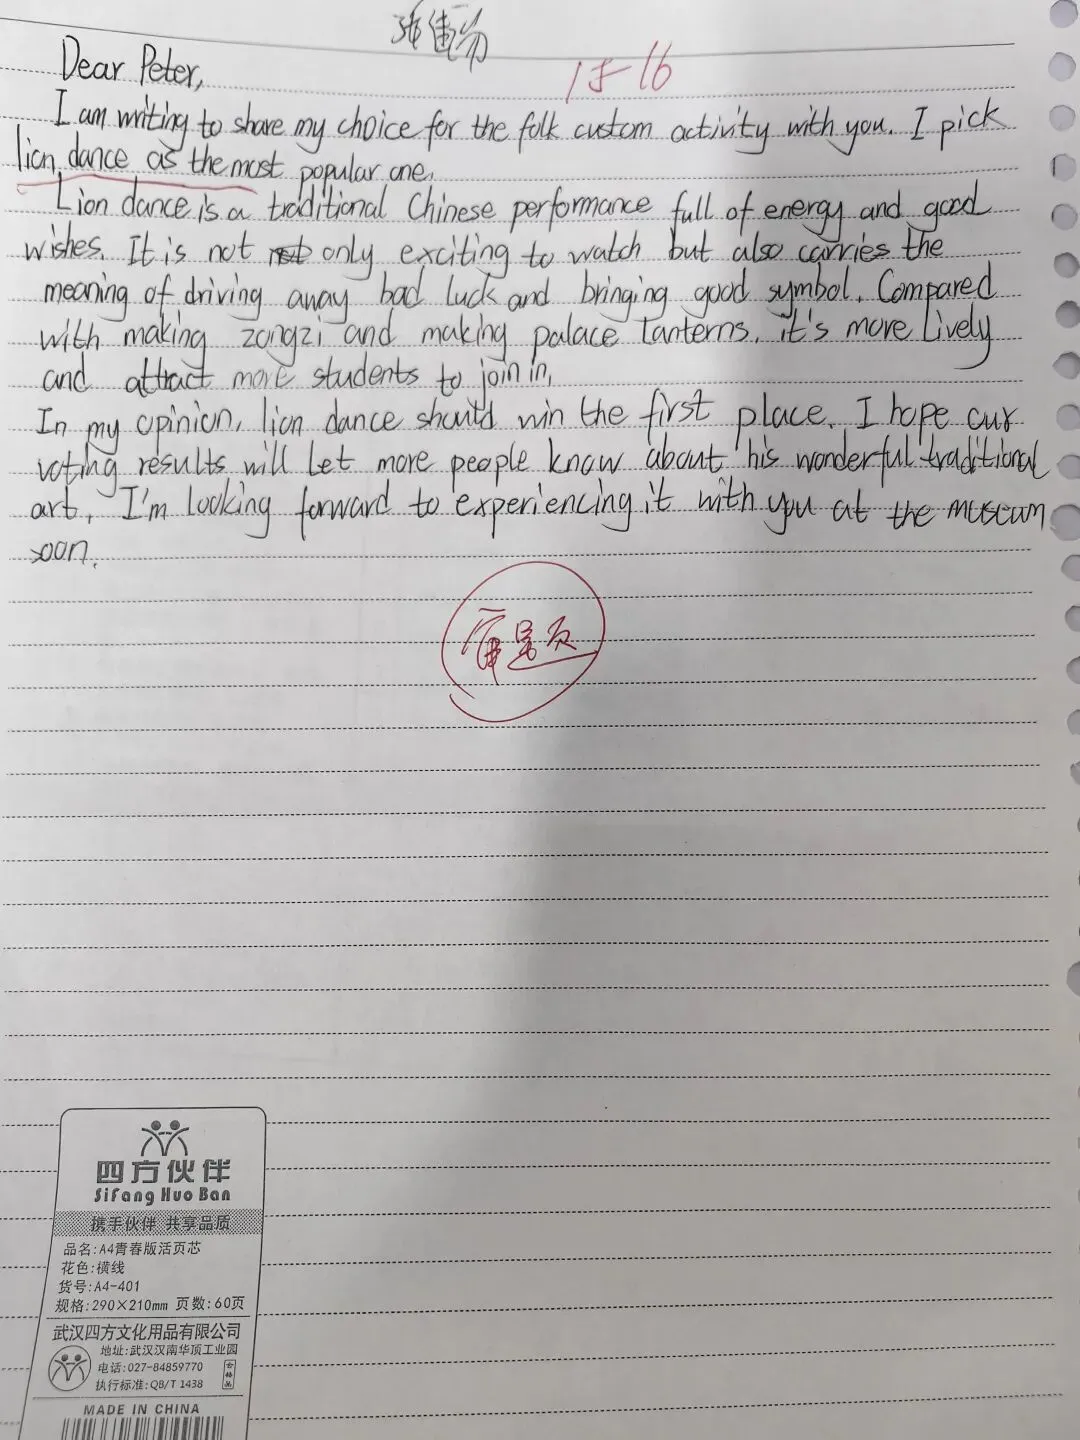 张佳汾
15-16
Dear Peter,
I am writing to share my choice for the folk custom activity with you. I pick
lion dance as the most popular one.
Lion dance is a traditional Chinese performance full of energy and good
wishes. It is not only exciting to watch but also carries the
meaning of driving away bad luck and bringing good symbol. Compared
with making zongzi and making palace lanterns, it's more lively
and attract more students to join in.
In my opinion, lion dance should win the first place. I hope our
voting results will let more people know about his wonderful traditional
art. I'm looking forward to experiencing it with you at the museum
soon.
审题
四方伙伴
SiFang Huo Ban
携手伙伴 共享品质
品名:A4青春版活页芯
花色:横线
货号:A4-401
规格:290×210mm 页数:60页
武汉四方文化用品有限公司
地址:武汉汉南华顶工业园
电话:027-84859770
执行标准:QB/T 1438
合格品
MADE IN CHINA